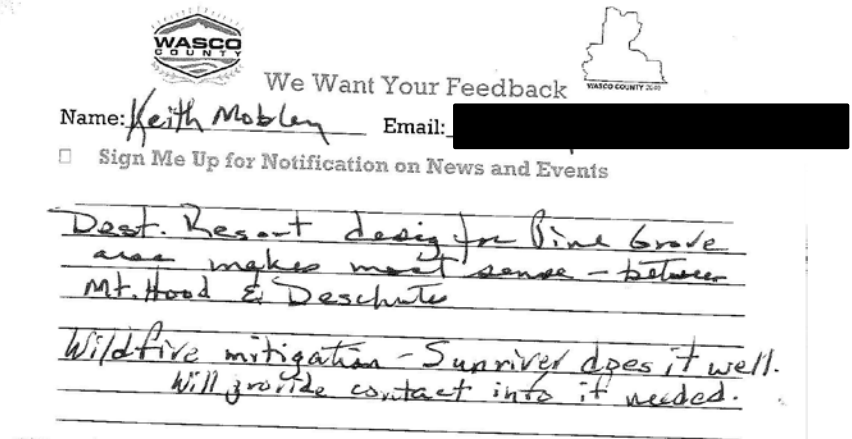 WASCO
COUNTY
WASCO COUNTY 2040
We Want Your Feedback
Name: Keith Mobley Email:
Sign Me Up for Notification on News and Events
Dest. Resort desig for Pine Grove
area makes most sense - between
Mt. Hood & Deschutes
Wildfire mitigation - Sunriver does it well.
Will provide contact info if needed.